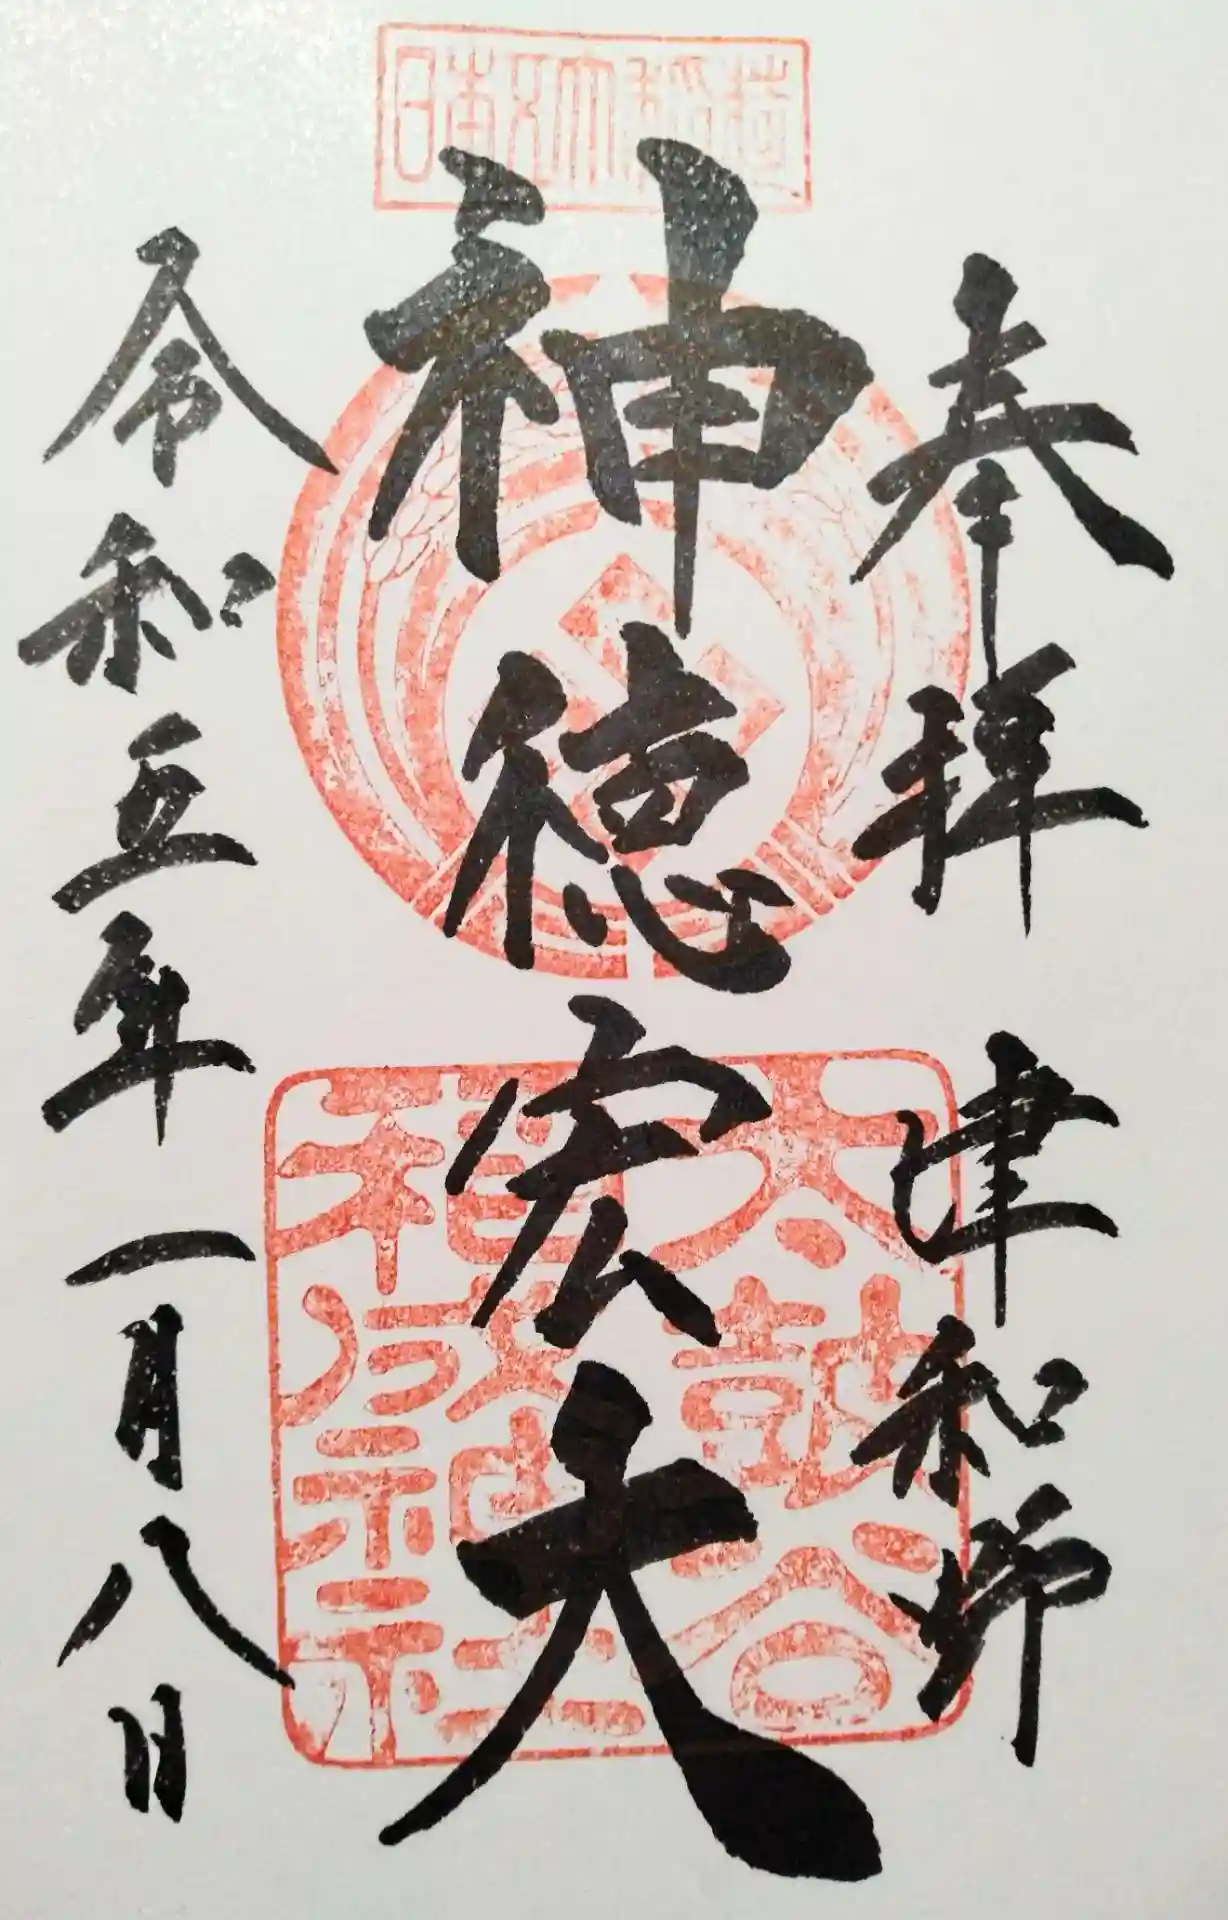 日本五大稲荷
奉拝 津和野
神徳宏大
太皷谷
稲成神社
令和五年一月八日